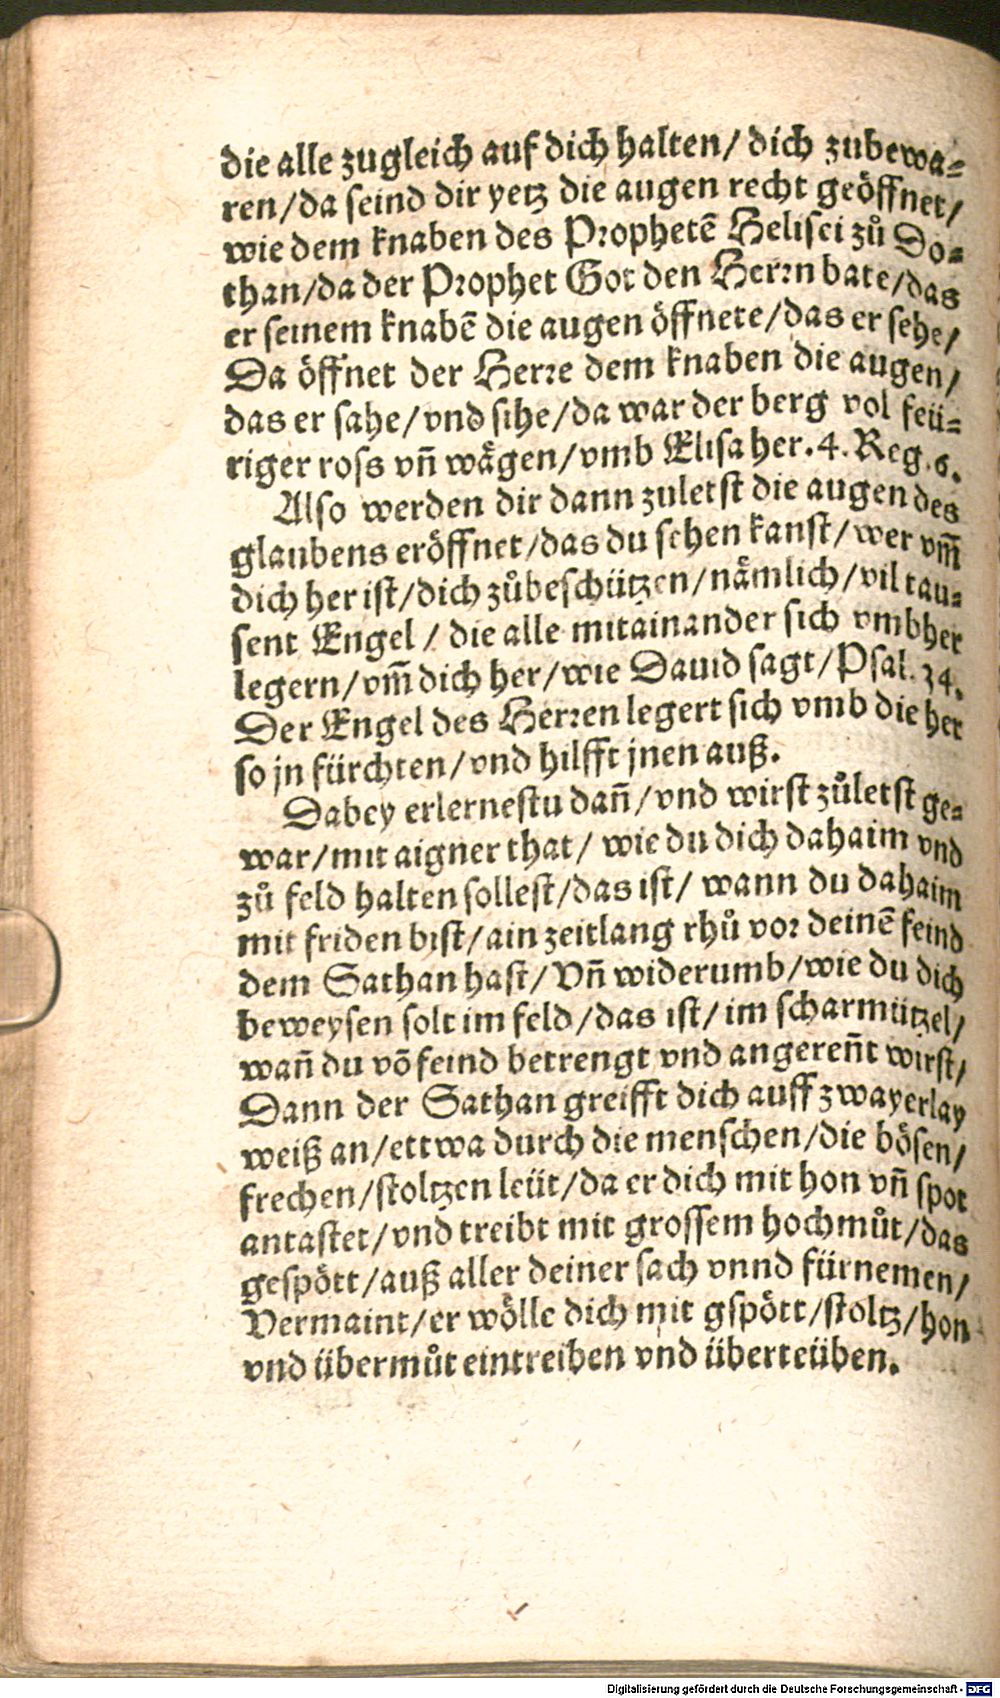 die alle zugleich auf dich halten/ dich zubewa⸗
ren/da seind dir yetz die augen recht geöffnet/
wie dem knaben des Prophetē Helisei zů Do⸗
than/da der Prophet Got den Herrn bate/das
er seinem knabē die augen öffnete/das er sehe/
Da öffnet der Herre dem knaben die augen/
das er sahe/vnd sihe/da war der berg vol feü⸗
riger ross vn̄ wägen/vmb Elisa her.4.Reg.6.
Also werden dir dann zuletst die augen des
glaubens eröffnet/das du sehen kanst/wer vm̄
dich her ist/dich zůbeschützen/nämlich/vil tau⸗
sent Engel/ die alle mitainander sich vmbher
legern/vm̄ dich her/wie Dauid sagt/Psal.34.
Der Engel des Herren legert sich vmb die her
so jn fürchten/vnd hilfft jnen auß.
Dabey erlernestu dan̄/vnd wirst zůletst ge⸗
war/mit aigner that/ wie du dich dahaim vnd
zů feld halten sollest/das ist/ wann du dahaim
mit friden bist/ain zeitlang rhů vor deinē feind
dem Sathan hast/Vn̄ widerumb/wie du dich
beweysen solt im feld/das ist/ im scharmützel/
wan̄ du vō feind betrengt vnd angeren̄t wirst/
Dann der Sathan greifft dich auff zwayerlay
weiß an/ettwa durch die menschen/die bösen/
frechen/stoltzen leüt/da er dich mit hon vn̄ spot
antastet/vnd treibt mit grossem hochmůt/das
gespött/auß aller deiner sach vnnd fürnemen/
Vermaint/er wölle dich mit gspött/stoltz/hon
vnd übermůt eintreiben vnd überteüben.
Digitalisierung gefördert durch die Deutsche Forschungsgemeinschaft - DFG